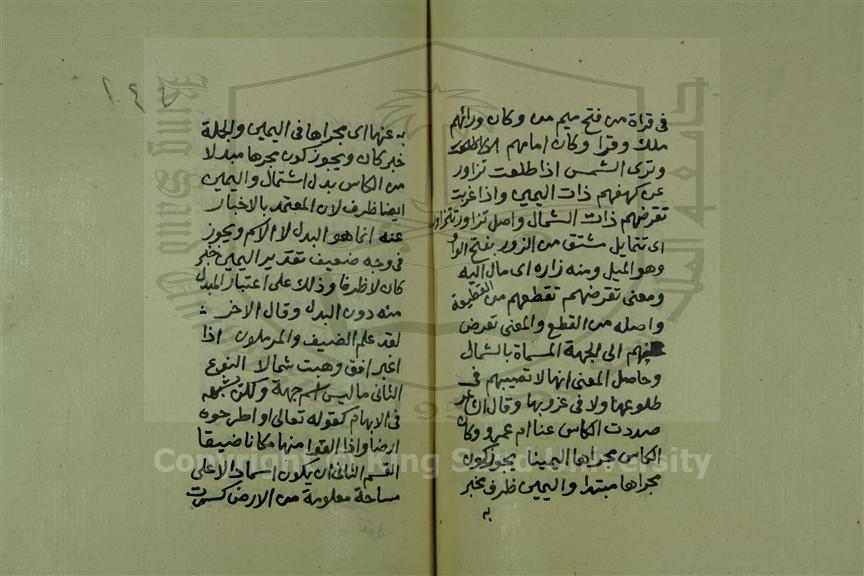 في قراة من فتح ميم من وكان ورائهم
ملك وقرا وكان امامهم
وترى الشمس اذا طلعت تزاور
عن كهفهم ذات اليمين واذا غربت
تقرضهم ذات الشمال واصل تزاور تتزاور
اي تتمايل مشتق من الزور بفتح الواو
وهو الميل ومنه زاره اي مال اليه
ومعنى تقرضهم تقطعهم من القطيعة
واصله من القطع والمعنى تعرض
عنهم الى الجهة المسماة بالشمال
وحاصل المعنى انها لا تصيبهم في
طلوعها ولا في غروبها وقال الشاعر
صددت الكاس عنا ام عمرو وكان
الكاس مجراها اليمينا يجوز كون
مجراها مبتدا واليمين ظرف مخبر
به
٢٤٤
به عنها اي مجراها في اليمين والجملة
خبر كان ويجوز كون مجرها مبدلا
من الكاس بدل اشتمال واليمين
ايضا ظرف لان المعتمد بالاخبار
عنه انما هو البدل لا الاسم ويجوز
في وجه ضعيف تقدير اليمين خبر
كان لا ظرفا وذلك على اعتبار المبدل
منه دون البدل وقال الاخر
لقد علم الضيف والمرملون اذا
اغبر افق وهبت شمالا النوع
الثاني ما ليس اسم جهة ولكن يشبهه
في الابهام كقوله تعالى او اطرحوه
ارضا واذا القوا منها مكانا ضيقا
القسم الثاني ان يكون اسما دالا على
مساحة معلومة من الارض كسرت
Copyright © King Saud University